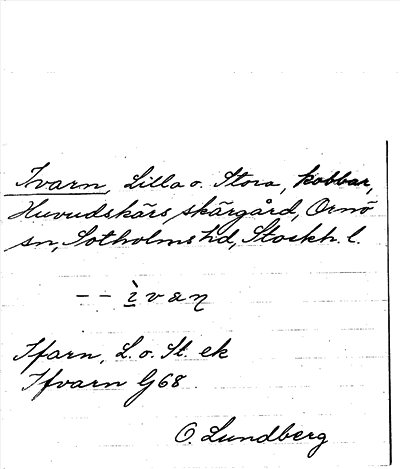 Ivarn, Lilla o. Stora, kobbar,
Huvudskärs skärgård, Ornö
sn, Sotholms hd, Stockh. l.
– – ìvaɳ
Ifarn, L. o. St. ek
Ifvarn G68
O. Lundberg